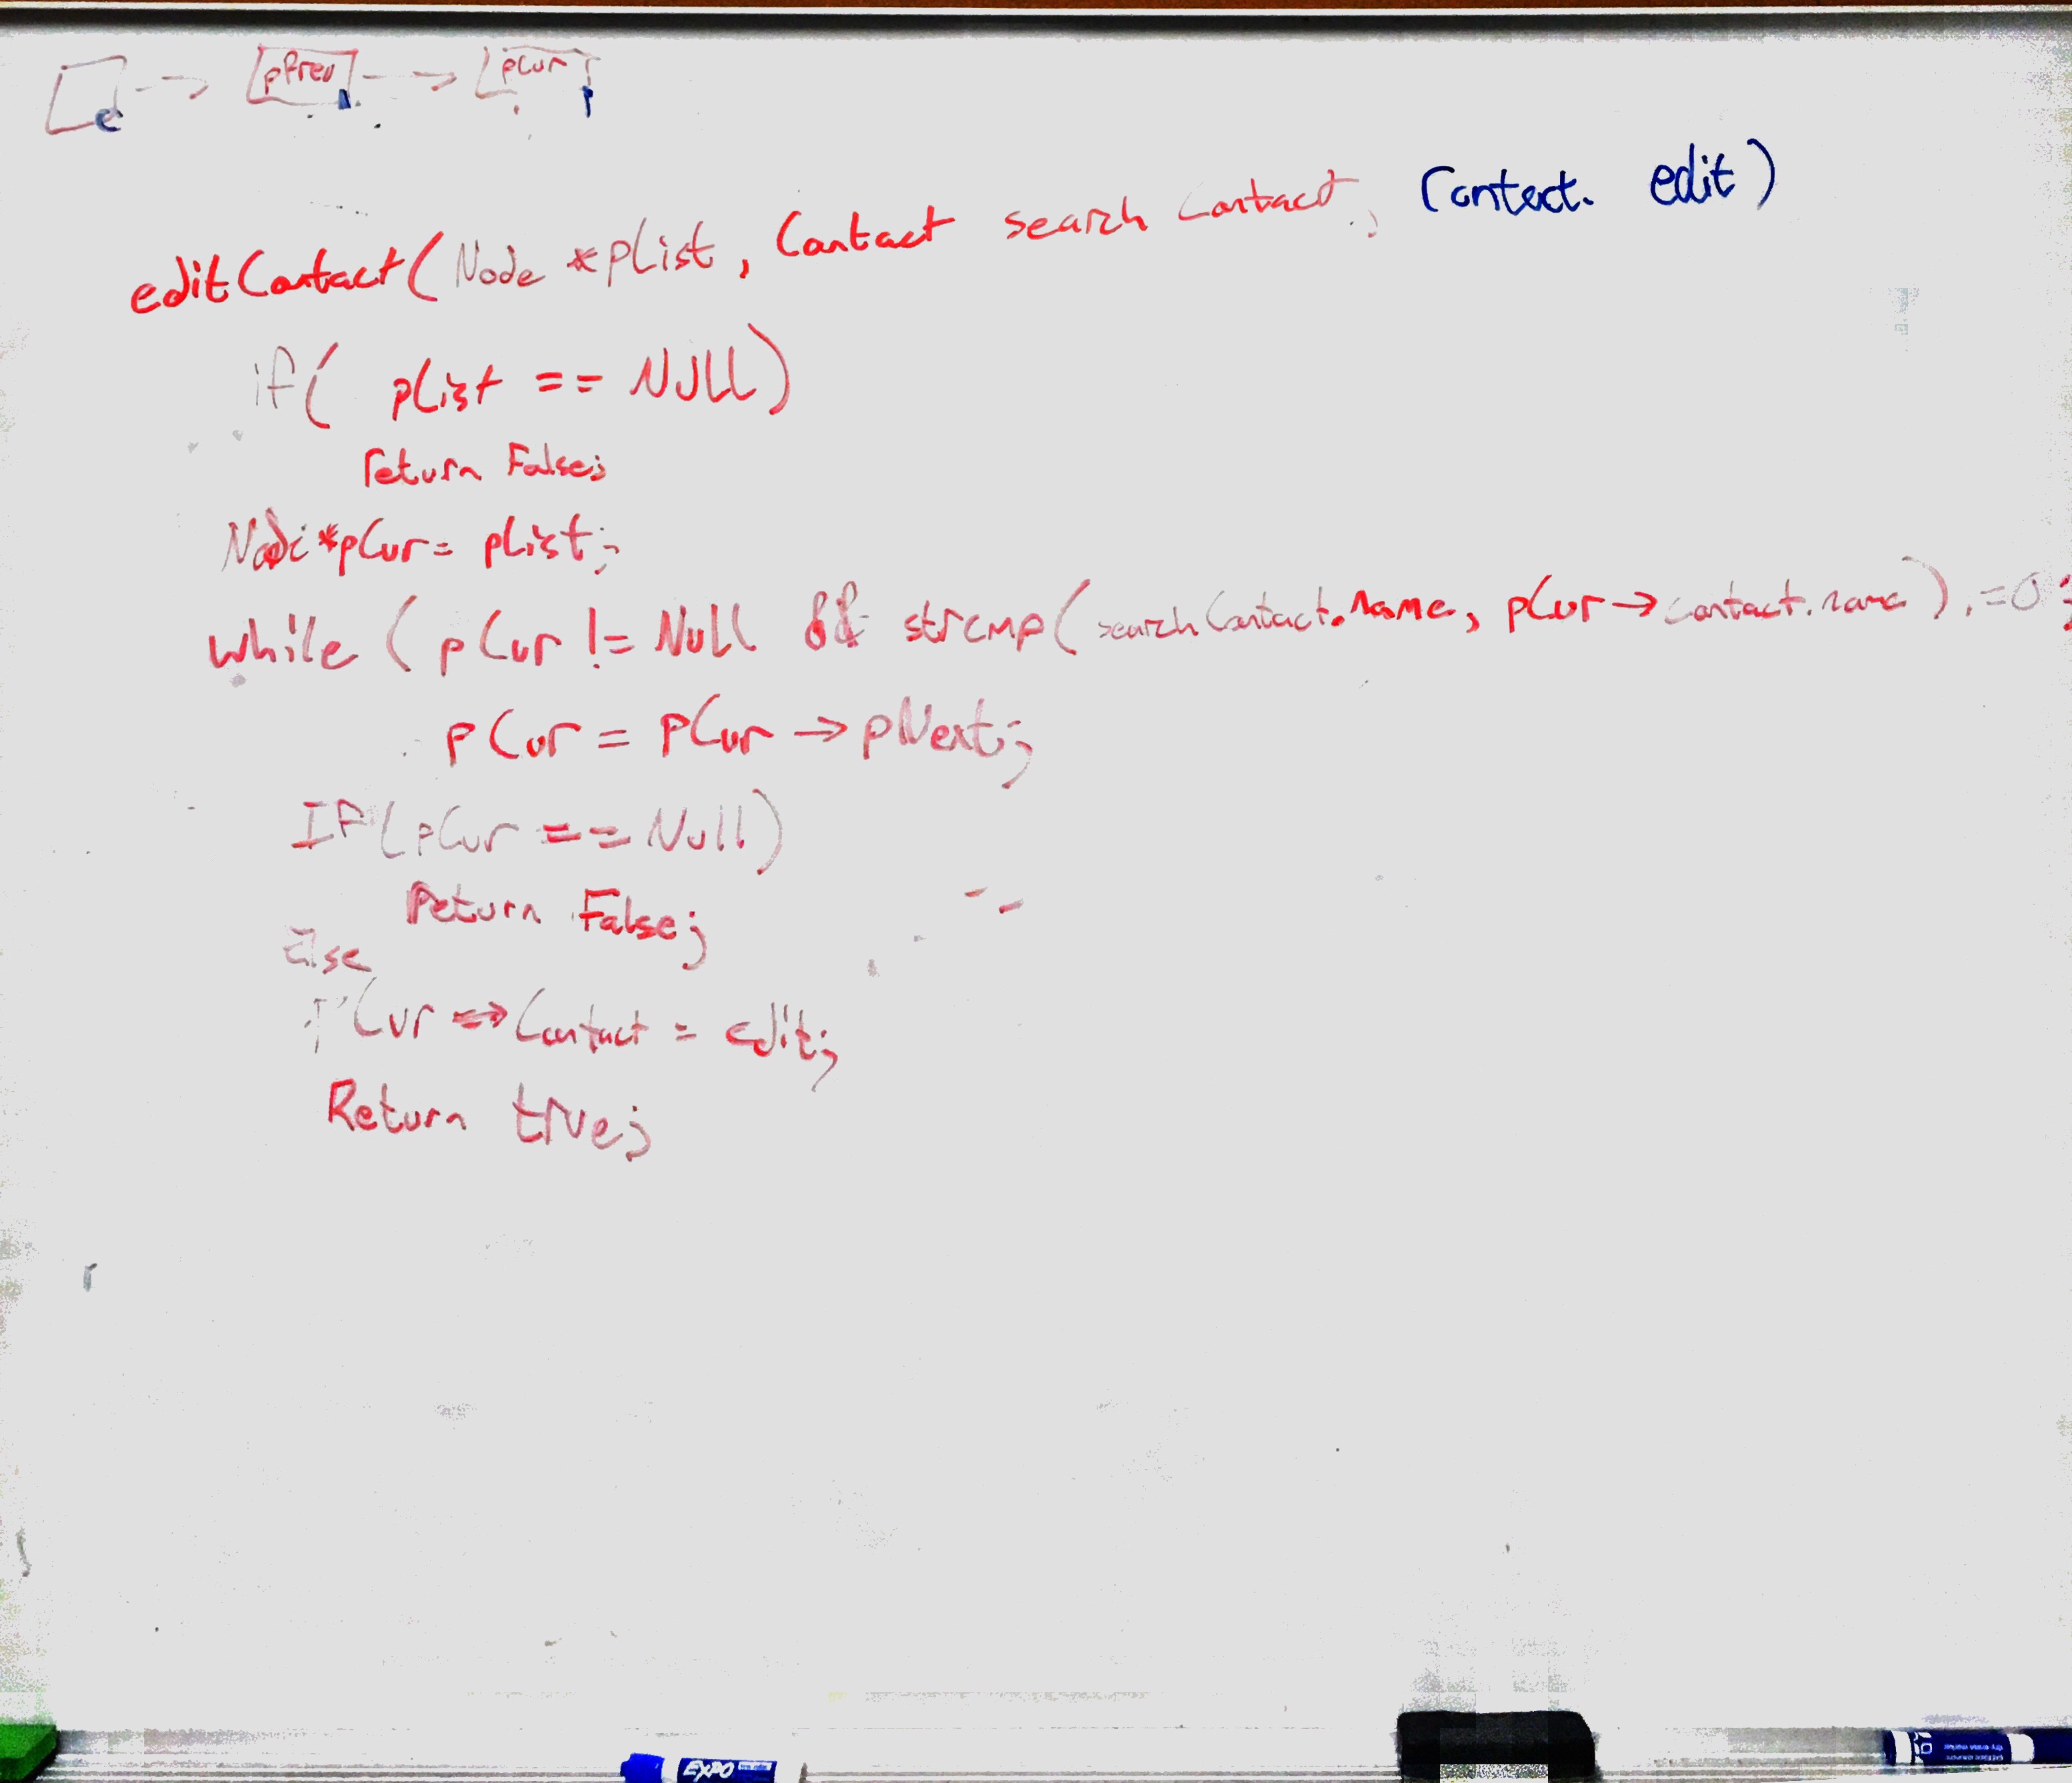 pPrev pCur
editContact(Node *pList, Contact searchContact, Contact. edit)
if( pList == NULL)
return False;
Node *pCur = pList;
while ( pCur != Null && strcmp(searchContact.name, pCur → contact.name) != 0;
pCur = pCur → pNext;
IF(pCur == Null)
Return False;
Else
pCur → Contact = edit;
Return true;
EXPO